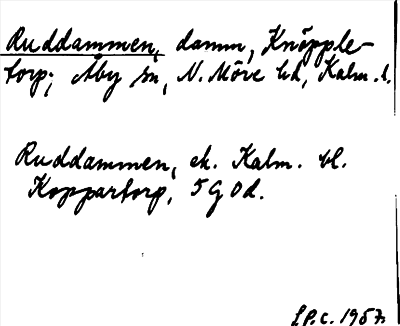 Ruddammen, damm, Knöpple-
torp, Åby sn, N. Möre hd, Kalm. l.
Ruddammen, ek. Kalm. bl.
Koppartorp, 5 G 0 d.
1957.